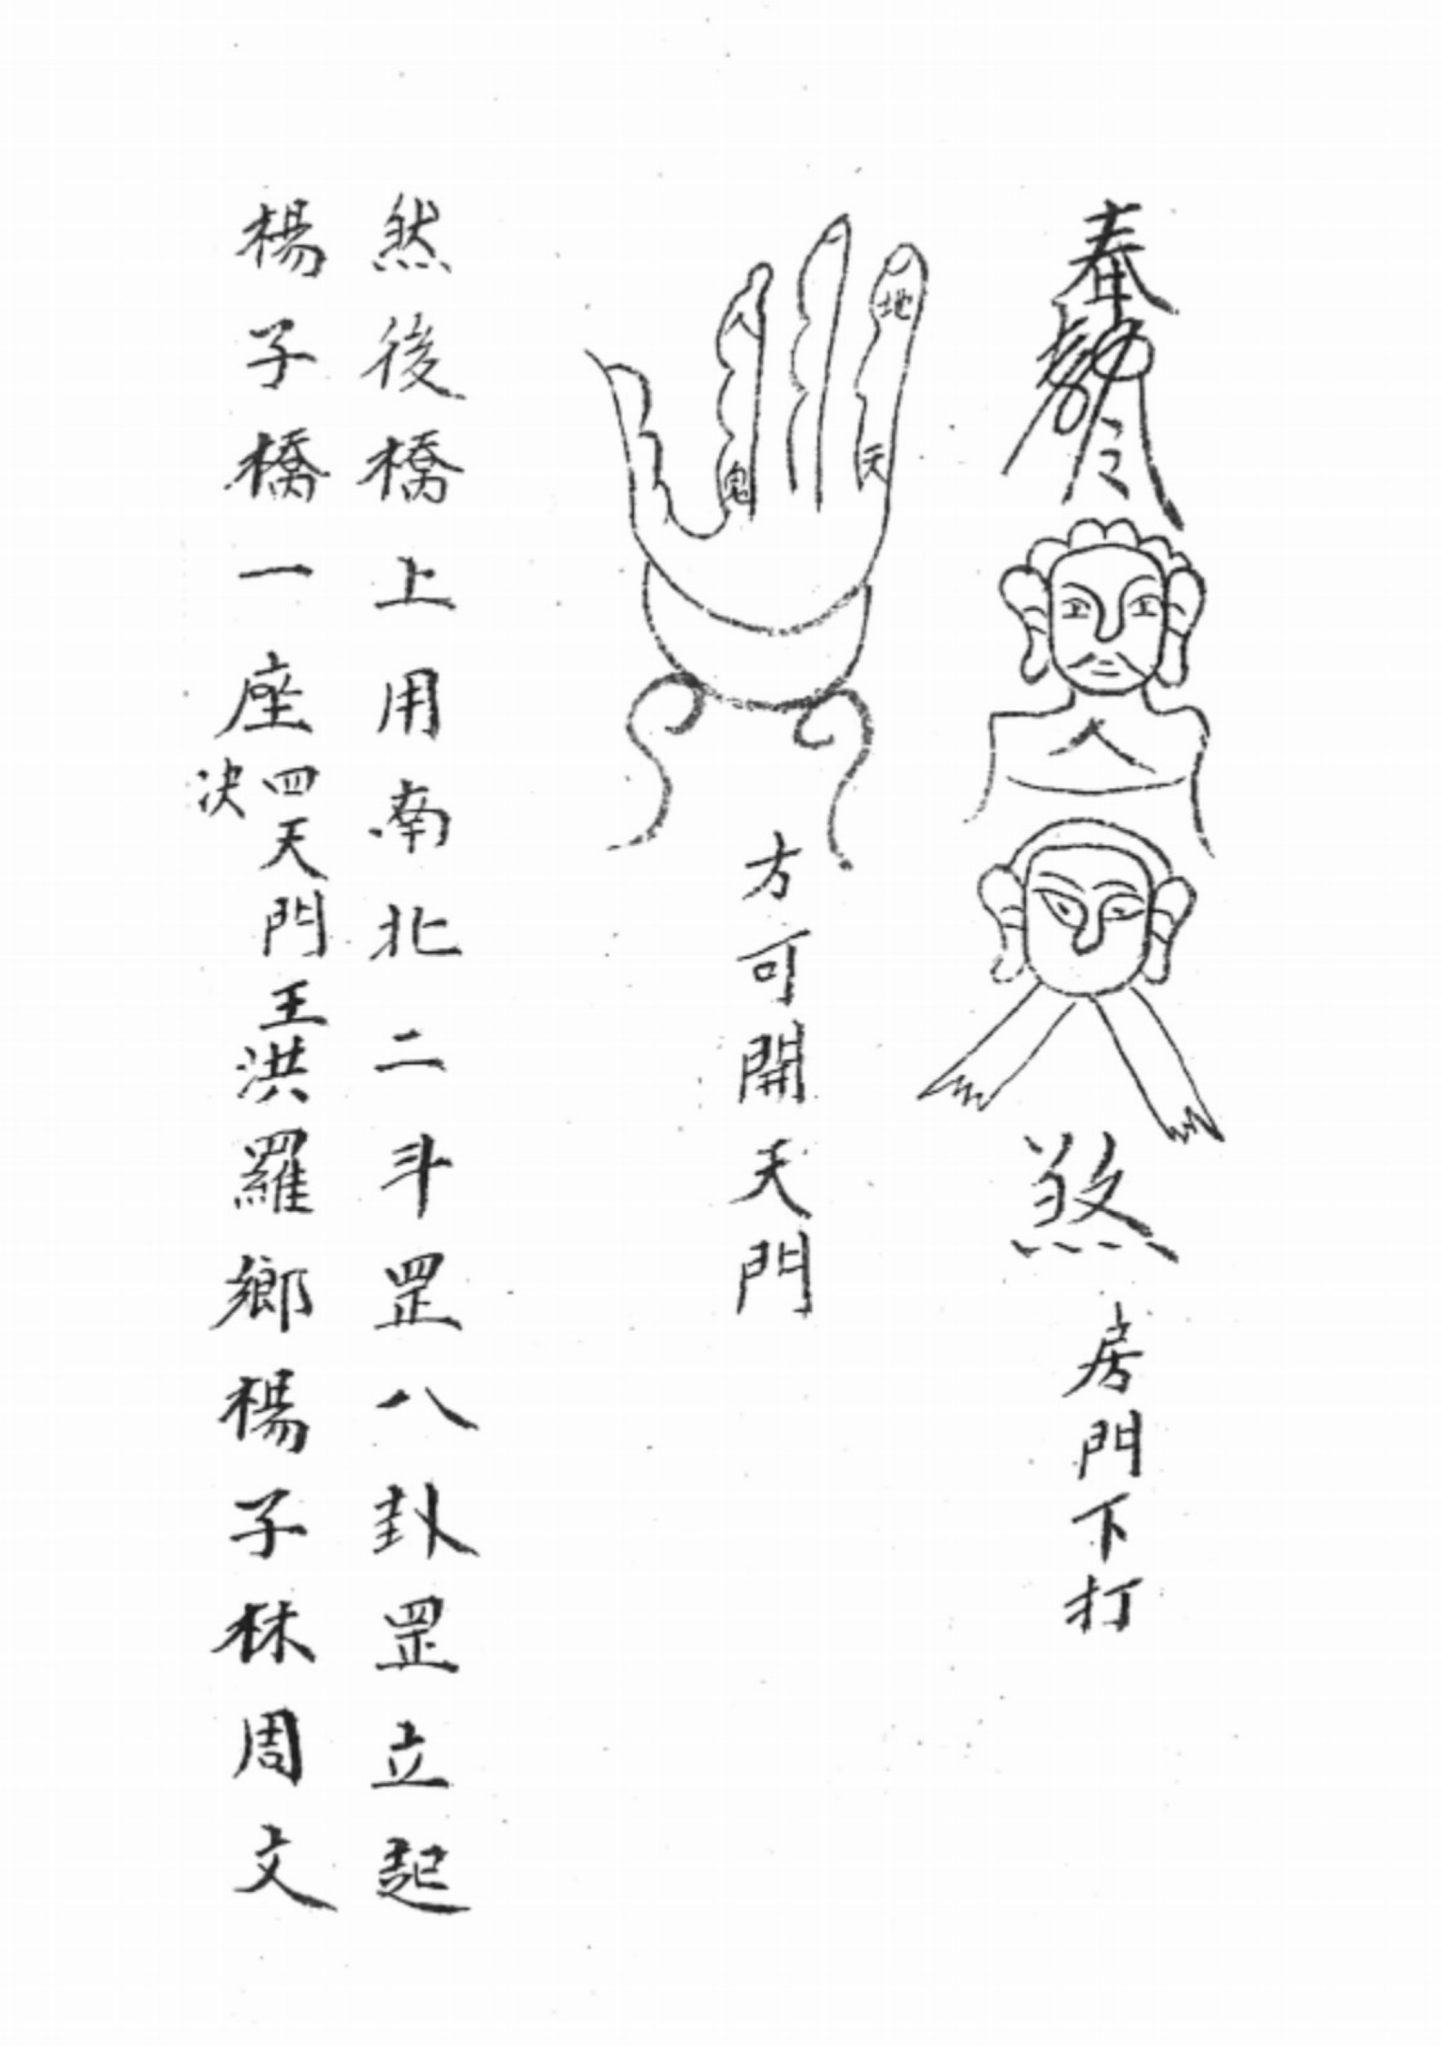 奉勅令
煞
房門下打
地
天
人
鬼
方可開天門
然後橋上用南北二斗罡八卦罡立起
楊子橋一座四天門王決洪羅鄉楊子林周文